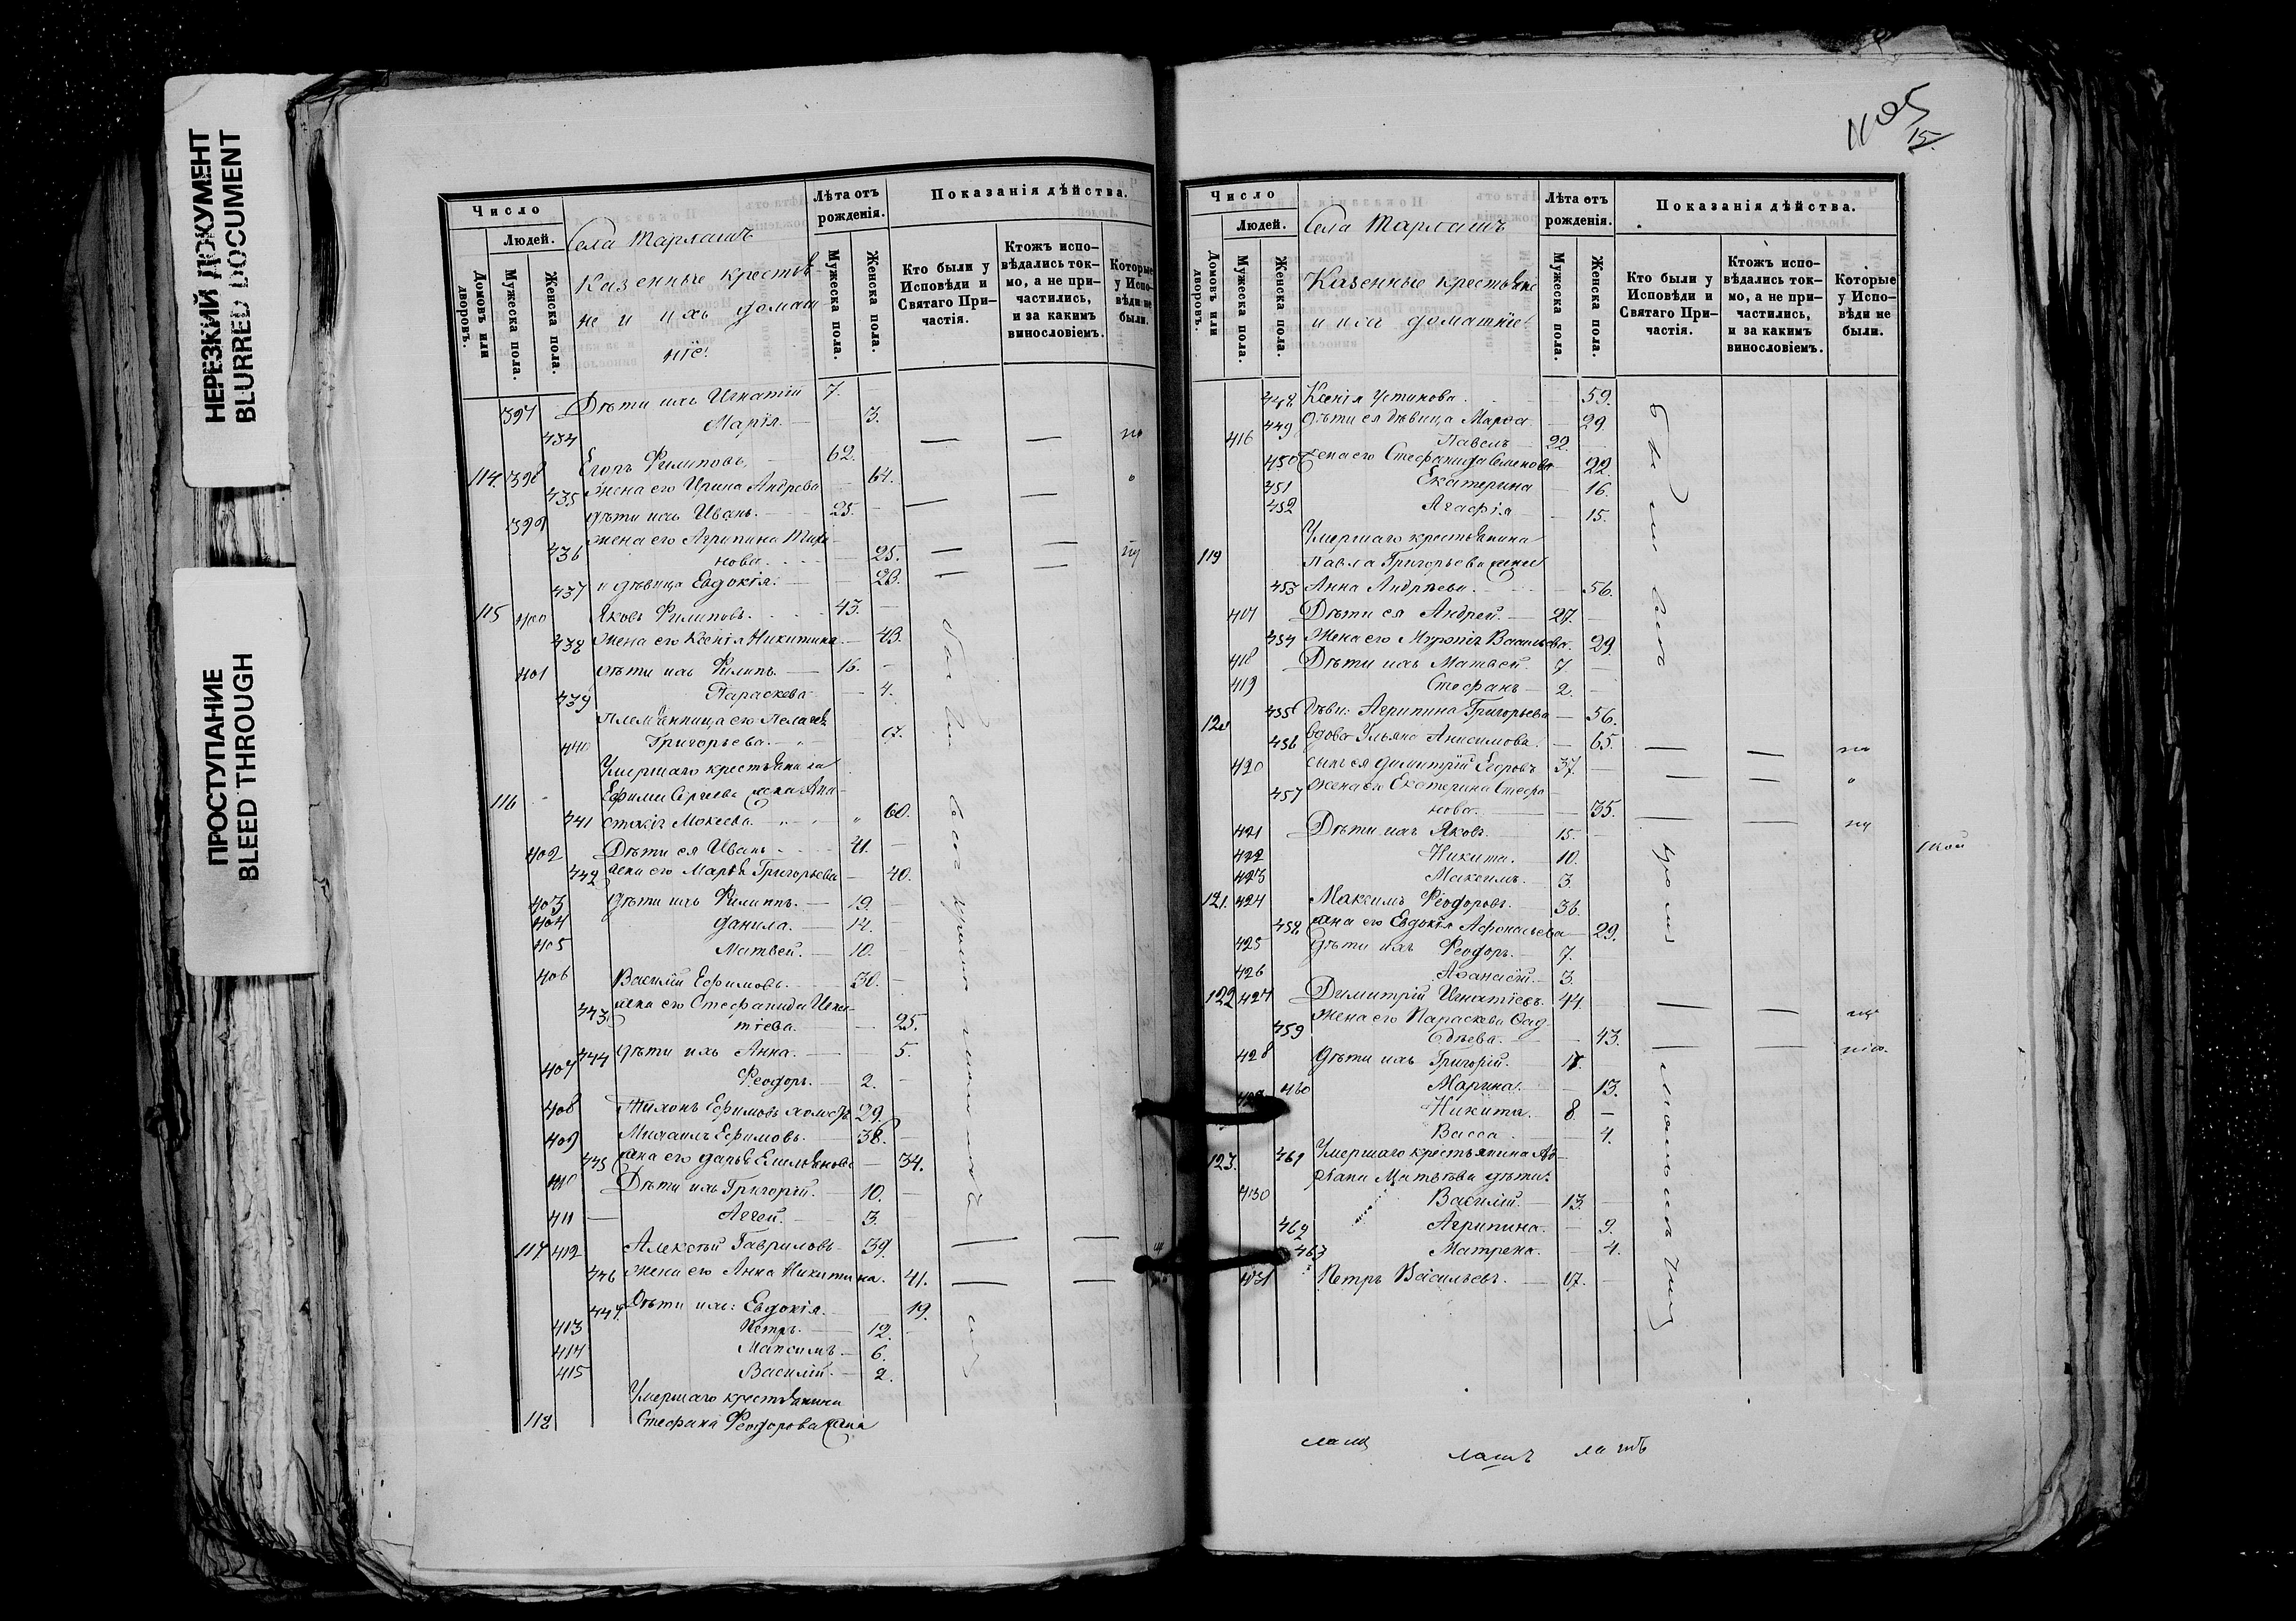 НЕРЕЗКИЙ ДОКУМЕНТ
BLURRED DOCUMENT
ПРОСТУПАНИЕ
BLEED THROUGH
Число
Людей.
Домовъ или дворовъ.
Мужеска пола.
Женска пола.
Села Тарлашъ
Казенные крестья-
не и ихъ домаш
ніе:
Лѣта отъ рожденія.
Мужеска пола.
Женска пола.
Показанія дѣйства.
Кто были у Исповѣди и Святаго При-частія.
Ктожъ испо-вѣдались ток-мо, а не при-частились, и за какимъ винословіемъ.
Которые у Испо-вѣди не были.
397 Дѣти ихъ Игнатій 7.
434 Марія. 3.
114. 398 Егоръ Филиповъ, 62.
435 жена его Ирина Андрева 64.
399 дѣти ихъ Иванъ. 25.
436 жена его Агрипина Тихо
нова. 25.
437 и дѣвица Евдокія. 20.
115 400 Яковъ Филиповъ. 43.
438 Жена его Ксенія Никитина. 43.
401 дѣти ихъ Филипъ. 16.
439 Параскева 4.
Племянница его Пелагея
440 Григорьева. 17.
Умершаго крестьянина
116 Ефима Сергѣева жена Ана-
441 стасія Мокеева. 60.
402 Дѣти ея Иванъ 41.
442 жена его Марья Григорьева 40.
403 дѣти ихъ Филиппъ. 19.
404 Данила. 14.
405 Матвей. 10.
406 Василій Ефимовъ. 30.
443 жена его Стефанида Игна-
тіева. 25.
444 дѣти ихъ Анна. 5.
407 Феодоръ. 2.
408 Тихонъ Ефимовъ холостъ 29.
409 Михаилъ Ефимовъ. 38.
445 жена его Дарья Емельянова 34.
410 Дѣти ихъ Григорій. 10.
411 Аггей. 3.
117 412 Алексѣй Гавриловъ 39.
446 Жена его Анна Никитина. 41.
447 Дѣти ихъ: Евдокія. 19.
413 Петръ. 12.
414 Максимъ. 6.
415 Василій. 2.
Умершаго крестьянина
118 Стефана Феодорова жена
были
15.
Число
Людей.
Домовъ или дворовъ.
Мужеска пола.
Женска пола.
Села Тарлашъ
Казенные крестьяне
и ихъ домашніе:
Лѣта отъ рожденія.
Мужеска пола.
Женска пола.
Показанія дѣйства.
Кто были у Исповѣди и Святаго При-частія.
Ктожъ испо-вѣдались ток-мо, а не при-частились, и за какимъ винословіемъ.
Которые у Испо-вѣди не были.
448 Ксенія Устинова 59.
449 Дѣти ея дѣвица Марѳа 29
416 Павелъ 22.
450 жена его Стефанида Семенова 22
451 Екатерина 16.
452 Агафія 15.
Умершаго крестьянина
119 Павла Григорьева жена
453 Анна Андреева. 56.
417 Дѣти ея Андрей. 27.
454 Жена его Васильева. 29.
418 Дѣти ихъ Матвей. 7
419 Стефанъ 2.
455 дѣви: Агрипина Григорьева 56.
120 456 вдова Ульяна Анисимова. 65.
420 сынъ ея Димитрій Егоровъ 37.
457 Жена его Екатерина Стефа
нова. 35.
421 Дѣти ихъ Яковъ. 15.
422 Никита. 10.
423 Максимъ. 3.
121. 424 Максимъ Феодоровъ. 36.
458 жена его Евдокія Афонасьева 29.
425 дѣти ихъ Феодоръ. 7.
426 Афанасій. 3.
122 427 Димитрій Игнатіевъ. 44.
Жена его Параскева Фад
459 деева. 43.
428 Дѣти ихъ Григорій. 17.
460 Марина. 13.
429 Никита. 8.
Васса 4.
123. 461 Умершаго крестьянина
Матвѣева дѣти:
430 Василій. 13.
462 Агрипина. 9.
463 Матрена. 4.
431 Петръ Васильевъ. 17.
были
лашъ